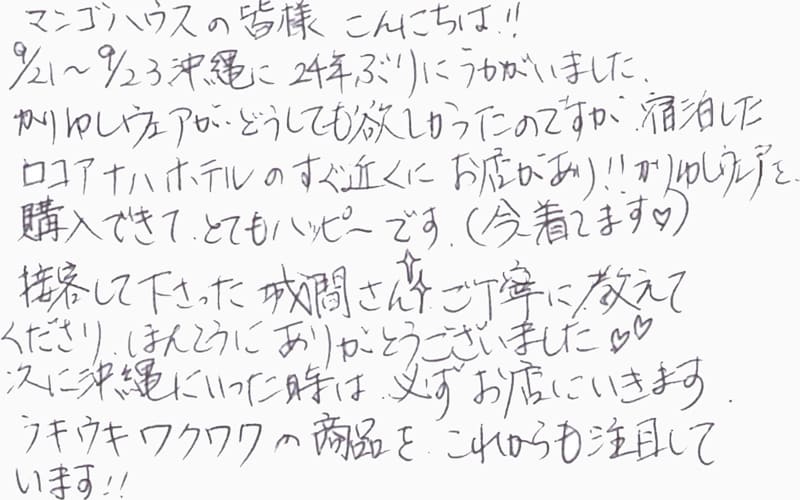 マンゴハウスの皆様 こんにちは!!
9/21〜9/23沖縄に 24年ぶりにうかがいました.
かりゆしウェアが.どうしても欲しかったのですが.宿泊した
ロコアナハホテルのすぐ近くに お店があり!!かりゆしウェアを.
購入できて.とてもハッピーです.(今着てます♡)
接客して下さった 城間さん✨ご丁寧に.教えて
くださり.ほんとうに ありがとうございました♡♡
次に沖縄にいった時は.必ずお店にいきます.
ウキウキワクワクの商品を.これからも注目して
います!!